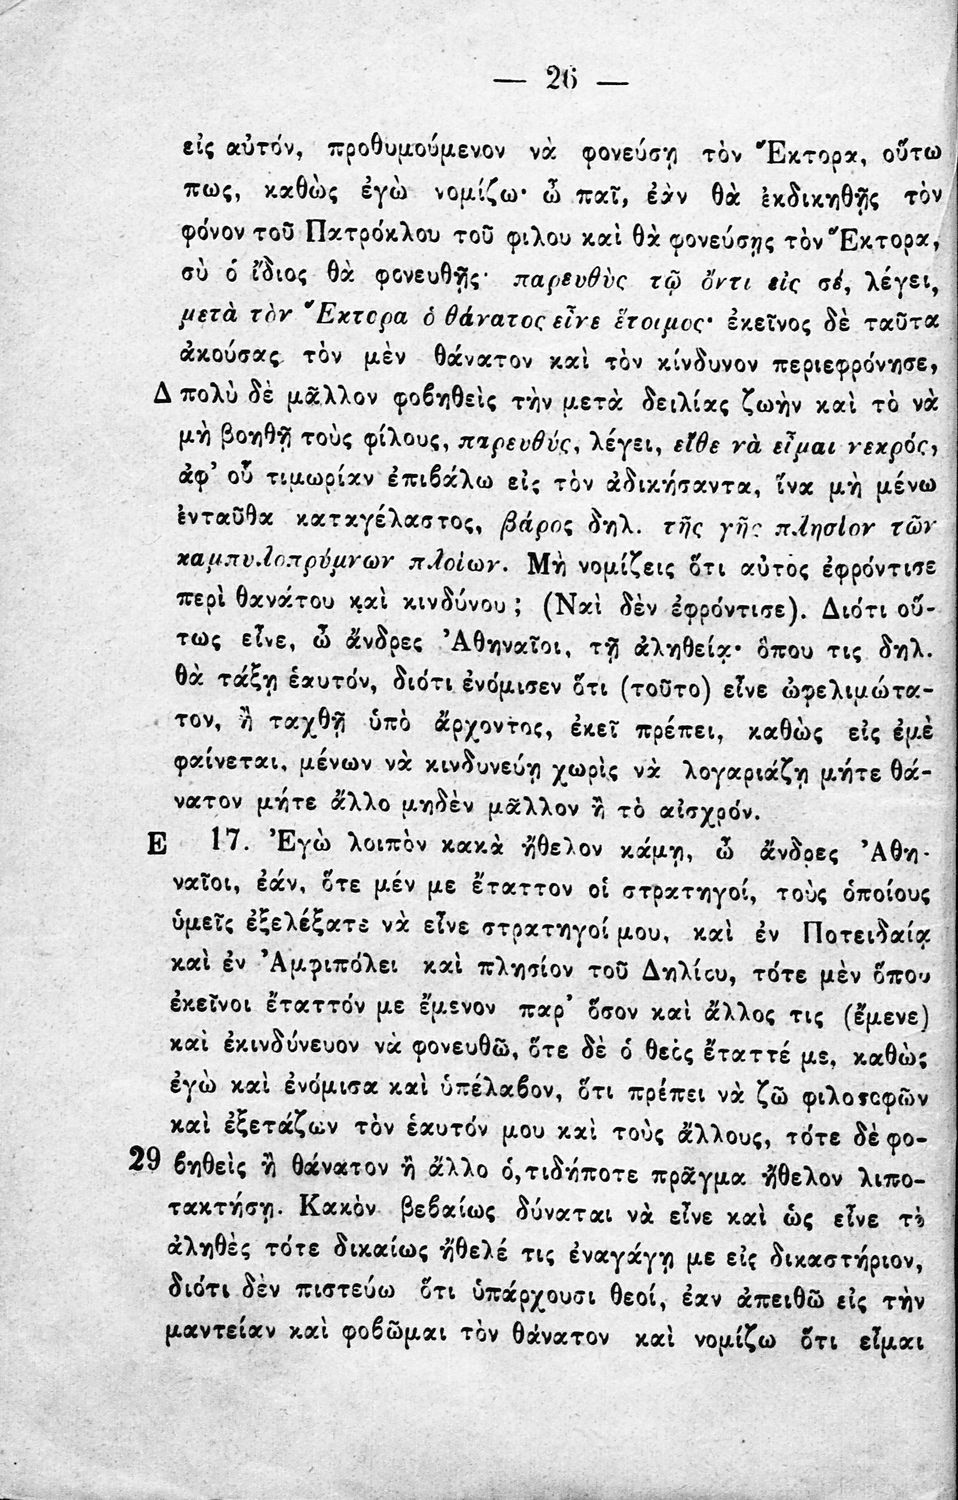 — 26 —
εἰς αὐτόν, προθυμούμενον νὰ φονεύσῃ τὸν Ἕκτορα, οὕτω
πως, καθὼς ἐγὼ νομίζω· ὦ παῖ, ἐὰν θὰ ἐκδικηθῇς τὸν
φόνον τοῦ Πατρόκλου τοῦ φιλου καὶ θὰ φονεύσῃς τὸν Ἕκτορα,
σὺ ὁ ἴδιος θὰ φονευθῇς· παρευθὺς τῷ ὄντι εἰς σέ, λέγει,
μετὰ τὸν Ἕκτορα ὁ θάνατος εἶνε ἕτοιμος· ἐκεῖνος δὲ ταῦτα
ἀκούσας τὸν μὲν θάνατον καὶ τὸν κίνδυνον περιεφρόνησε,
Δ πολὺ δὲ μᾶλλον φοβηθεὶς τὴν μετὰ δειλίας ζωὴν καὶ τὸ νὰ
μὴ βοηθῇ τοὺς φίλους, παρευθύς, λέγει, εἴθε νὰ εἶμαι νεκρός,
ἀφ' οὗ τιμωρίαν ἐπιβάλω εἰς τὸν ἀδικήσαντα, ἵνα μὴ μένω
ἐνταῦθα καταγέλαστος, βάρος δηλ. τῆς γῆς πλησίον τῶν
καμπυλοπρύμνων πλοίων. Μὴ νομίζεις ὅτι αὐτὸς ἐφρόντισε
περὶ θανάτου καὶ κινδύνου; (Ναὶ δὲν ἐφρόντισε). Διότι οὕ-
τως εἶνε, ὦ ἄνδρες Ἀθηναῖοι, τῇ ἀληθείᾳ· ὅπου τις δηλ.
θὰ τάξῃ ἑαυτόν, διότι ἐνόμισεν ὅτι (τοῦτο) εἶνε ὠφελιμώτα-
τον, ἢ ταχθῇ ὑπὸ ἄρχοντος, ἐκεῖ πρέπει, καθὼς εἰς ἐμὲ
φαίνεται, μένων νὰ κινδυνεύῃ χωρὶς νὰ λογαριάζῃ μήτε θά-
νατον μήτε ἄλλο μηδὲν μᾶλλον ἢ τὸ αἰσχρόν.
Ε 17. Ἐγὼ λοιπὸν κακὰ ἤθελον κάμῃ, ὦ ἄνδρες Ἀθη-
ναῖοι, ἐάν, ὅτε μέν με ἔταττον οἱ στρατηγοί, τοὺς ὁποίους
ὑμεῖς ἐξελέξατε νὰ εἶνε στρατηγοί μου, καὶ ἐν Ποτειδαίᾳ
καὶ ἐν Ἀμφιπόλει καὶ πλησίον τοῦ Δηλίου, τότε μὲν ὅπου
ἐκεῖνοι ἔταττόν με ἔμενον παρ' ὅσον καὶ ἄλλος τις (ἔμενε)
καὶ ἐκινδύνευον νὰ φονευθῶ, ὅτε δὲ ὁ θεὸς ἔταττέ με, καθὼς
ἐγὼ καὶ ἐνόμισα καὶ ὑπέλαβον, ὅτι πρέπει νὰ ζῶ φιλοσοφῶν
καὶ ἐξετάζων τὸν ἑαυτόν μου καὶ τοὺς ἄλλους, τότε δὲ φο-
29 βηθεὶς ἢ θάνατον ἢ ἄλλο ὁ,τιδήποτε πρᾶγμα ἤθελον λιπο-
τακτήσῃ. Κακὸν βεβαίως δύναται νὰ εἶνε καὶ ὡς εἶνε τὸ
ἀληθὲς τότε δικαίως ἤθελέ τις ἐναγάγῃ με εἰς δικαστήριον,
διότι δὲν πιστεύω ὅτι ὑπάρχουσι θεοί, ἐαν ἀπειθῶ εἰς τὴν
μαντείαν καὶ φοβῶμαι τὸν θάνατον καὶ νομίζω ὅτι εἶμαι